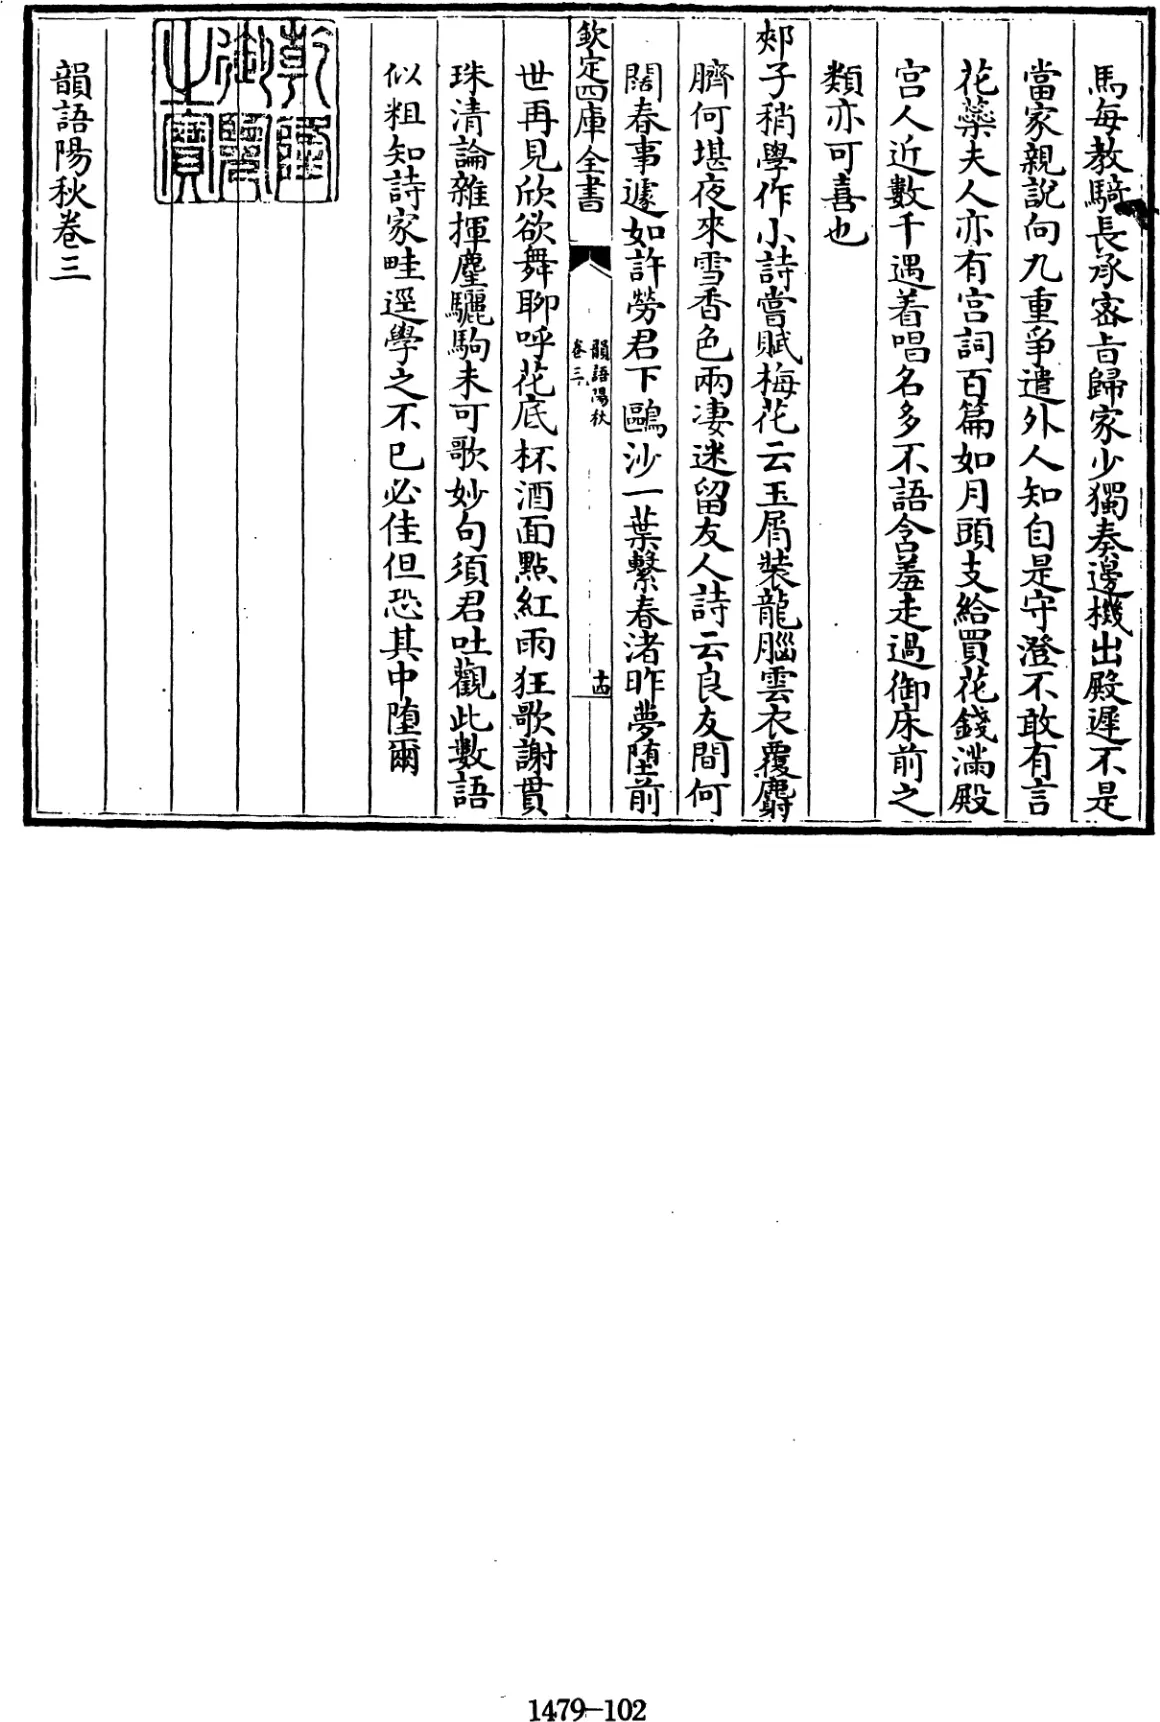 馬每教騎長承宻㫖歸家少獨奏邊機出殿遲不是
當家親説向九重爭遣外人知自是守澄不敢有言
花蘂夫人亦有宫詞百篇如月頭支給買花錢滿殿
宫人近數千遇着唱名多不語含羞走過御床前之
類亦可喜也
郟子稍學作小詩嘗賦梅花云玉屑裝龍腦雲衣覆麝
臍何堪夜來雪香色兩凄迷留友人詩云良友間何
闊春事遽如許勞君下鷗沙一葉繫春渚昨夢墮前
欽定四庫全書
韻語陽秋
卷三
十四
世再見欣欲舞聊呼花底杯酒面㸃紅雨狂歌謝貫
珠清論雜揮麈驪駒未可歌妙句須君吐觀此數語
似粗知詩家畦逕學之不已必佳但恐其中墮爾
乾隆御覽之寶
韻語陽秋卷三
1479-102